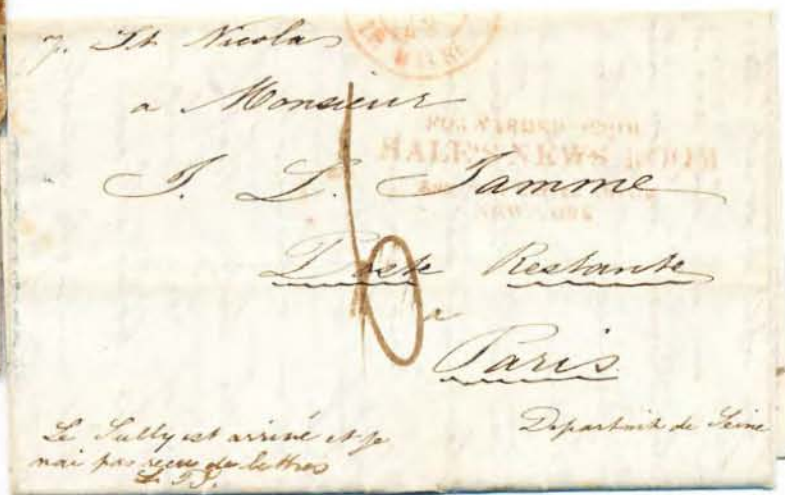 p. St Nicolas
a Monsieur
FORWARDED FROM
HALE'S NEWS ROOM
NEW-YORK
J. L. Tamme
Poste Restante
a
Paris
Departmt de Seine
Le Sully est arrivé et je
nai pas reçu de lettres